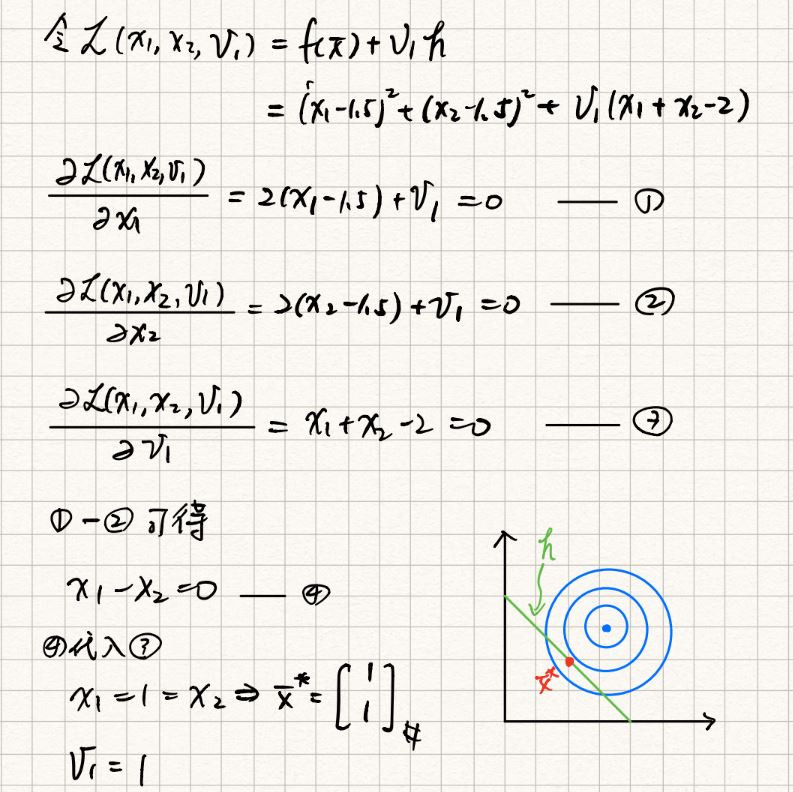 令 ℒ(x₁, x₂, v₁) = f(x̄) + v₁h
= (x₁-1.5)² + (x₂-1.5)² + v₁(x₁+x₂-2)
∂ℒ(x₁,x₂,v₁)/∂x₁ = 2(x₁-1.5)+v₁ = 0 —— ①
∂ℒ(x₁,x₂,v₁)/∂x₂ = 2(x₂-1.5)+v₁ = 0 —— ②
∂ℒ(x₁,x₂,v₁)/∂v₁ = x₁+x₂-2 = 0 —— ③
①-②可得
x₁-x₂=0 —— ④
④代入③
x₁=1=x₂ ⇒ x̄* = [1 1] #
v₁ = 1
h
x̄*